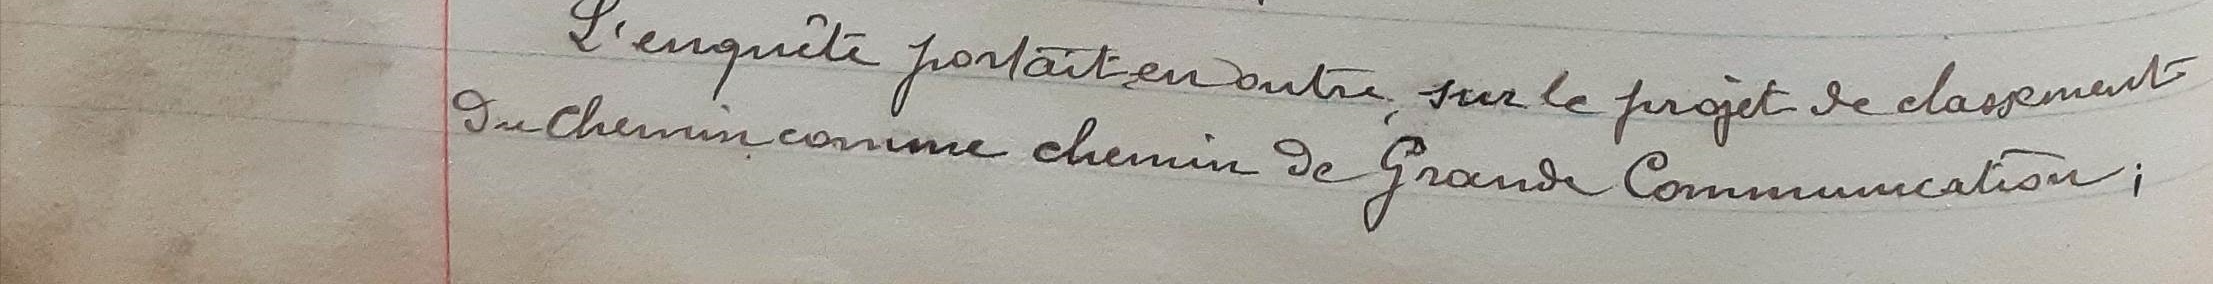 L'enquête portait en outre, sur le projet de classement
du chemin comme chemin de Grande Communication;